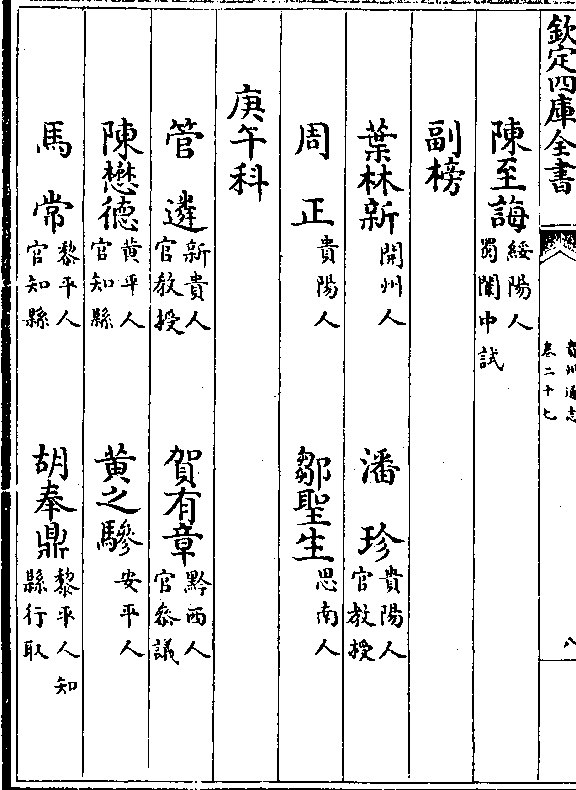 欽定四庫全書
貴州通志
卷二十七
八
陳至誨 綏陽人 蜀闈中試
副榜
葉林新 開州人 潘珍 貴陽人 官教授
周正 貴陽人 鄒聖生 思南人
庚午科
管遴 新貴人 官教授 賀有章 黔西人 官叅議
陳懋德 黄平人 官知縣 黄之驂 安平人
馬常 黎平人 官知縣 胡奉鼎 黎平人知縣行取